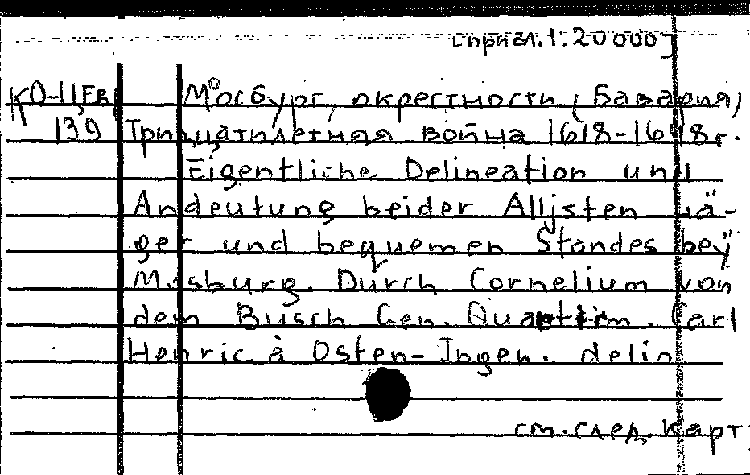 с прибл. 1:20000
КО-11,Fв/
139
Мосбург, окрестности, (Бавария)
Тридцатилетняя война 1618-1648г.
Eigentliche Delineation und
Andeutung beider Alljsten Lä-
ger und bequemen Standes beÿ
Mosburg. Durch Cornelium von
dem Busch Gen. Quartirm. Carl
Henric à Osten-Ingen. delin
см. след. карт